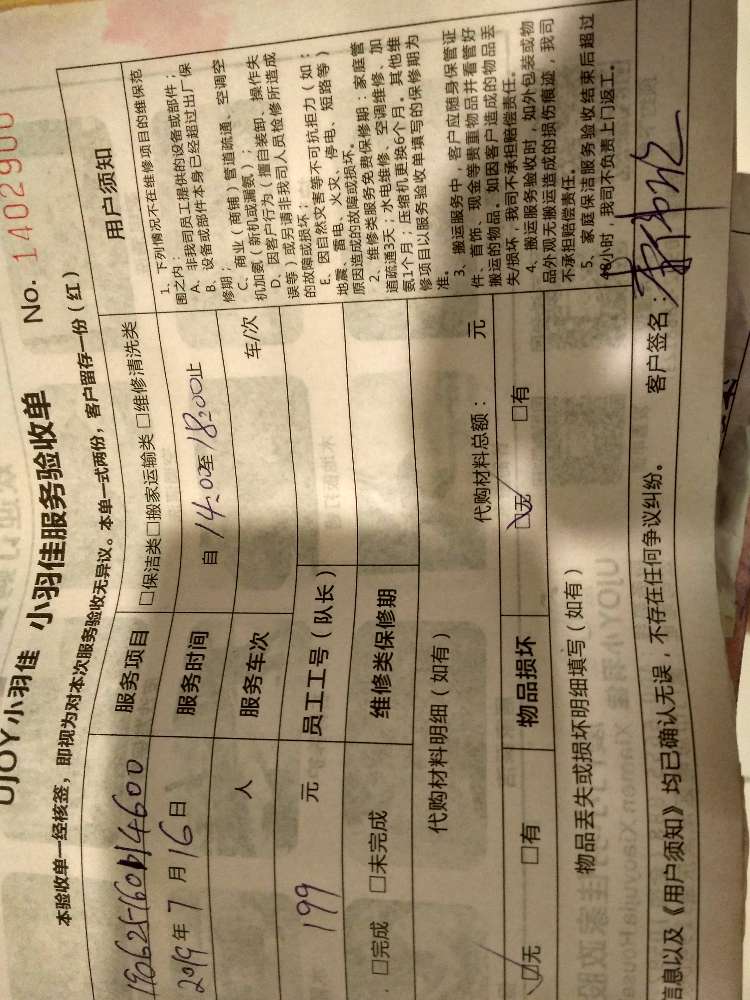 UJOY小羽佳 小羽佳服务验收单 No. 1402900
本验收单一经核签，即视为对本次服务验收无异议。本单一式两份，客户留存一份（红）
服务项目 □保洁类□搬家运输类 □维修清洗类
2019年7月16日 服务时间 自 14:00至 18:00止
人 服务车次 车/次
199 元 员工工号（队长）
□完成 □未完成 维修类保修期
代购材料明细（如有） 代购材料总额： 元
☑无 □有 物品损坏 ☑无 □有
物品丢失或损坏明细填写（如有）
信息以及《用户须知》均已确认无误，不存在任何争议纠纷。 客户签名：
用户须知
1、下列情况不在维修项目的维保范
围之内：
A、非我司员工提供的设备或部件；
B、设备或部件本身已经超过出厂保
修期；
C、商业（商铺）管道疏通、空调空
机加氨（新机或漏氨）；
D、因客户行为（擅自装卸、操作失
误等）或另请非我司人员检修所造成
的故障或损坏；
E、因自然灾害等不可抗拒力（如：
地震、雷电、火灾、停电、短路等）
原因造成的故障或损坏。
2、维修类服务免费保修期：家庭管
道疏通3天；水电维修、空调维修、加
氨1个月；压缩机更换6个月。其他维
修项目以服务验收单填写的保修期为
准。
3、搬运服务中，客户应随身保管证
件、首饰、现金等贵重物品并看管好
搬运的物品。如因客户造成的物品丢
失/损坏，我司不承担赔偿责任。
4、搬运服务验收时，如外包装或物
品外观无搬运造成的损伤痕迹，我司
不承担赔偿责任。
5、家庭保洁服务验收结束后超过
48小时，我司不负责上门返工。